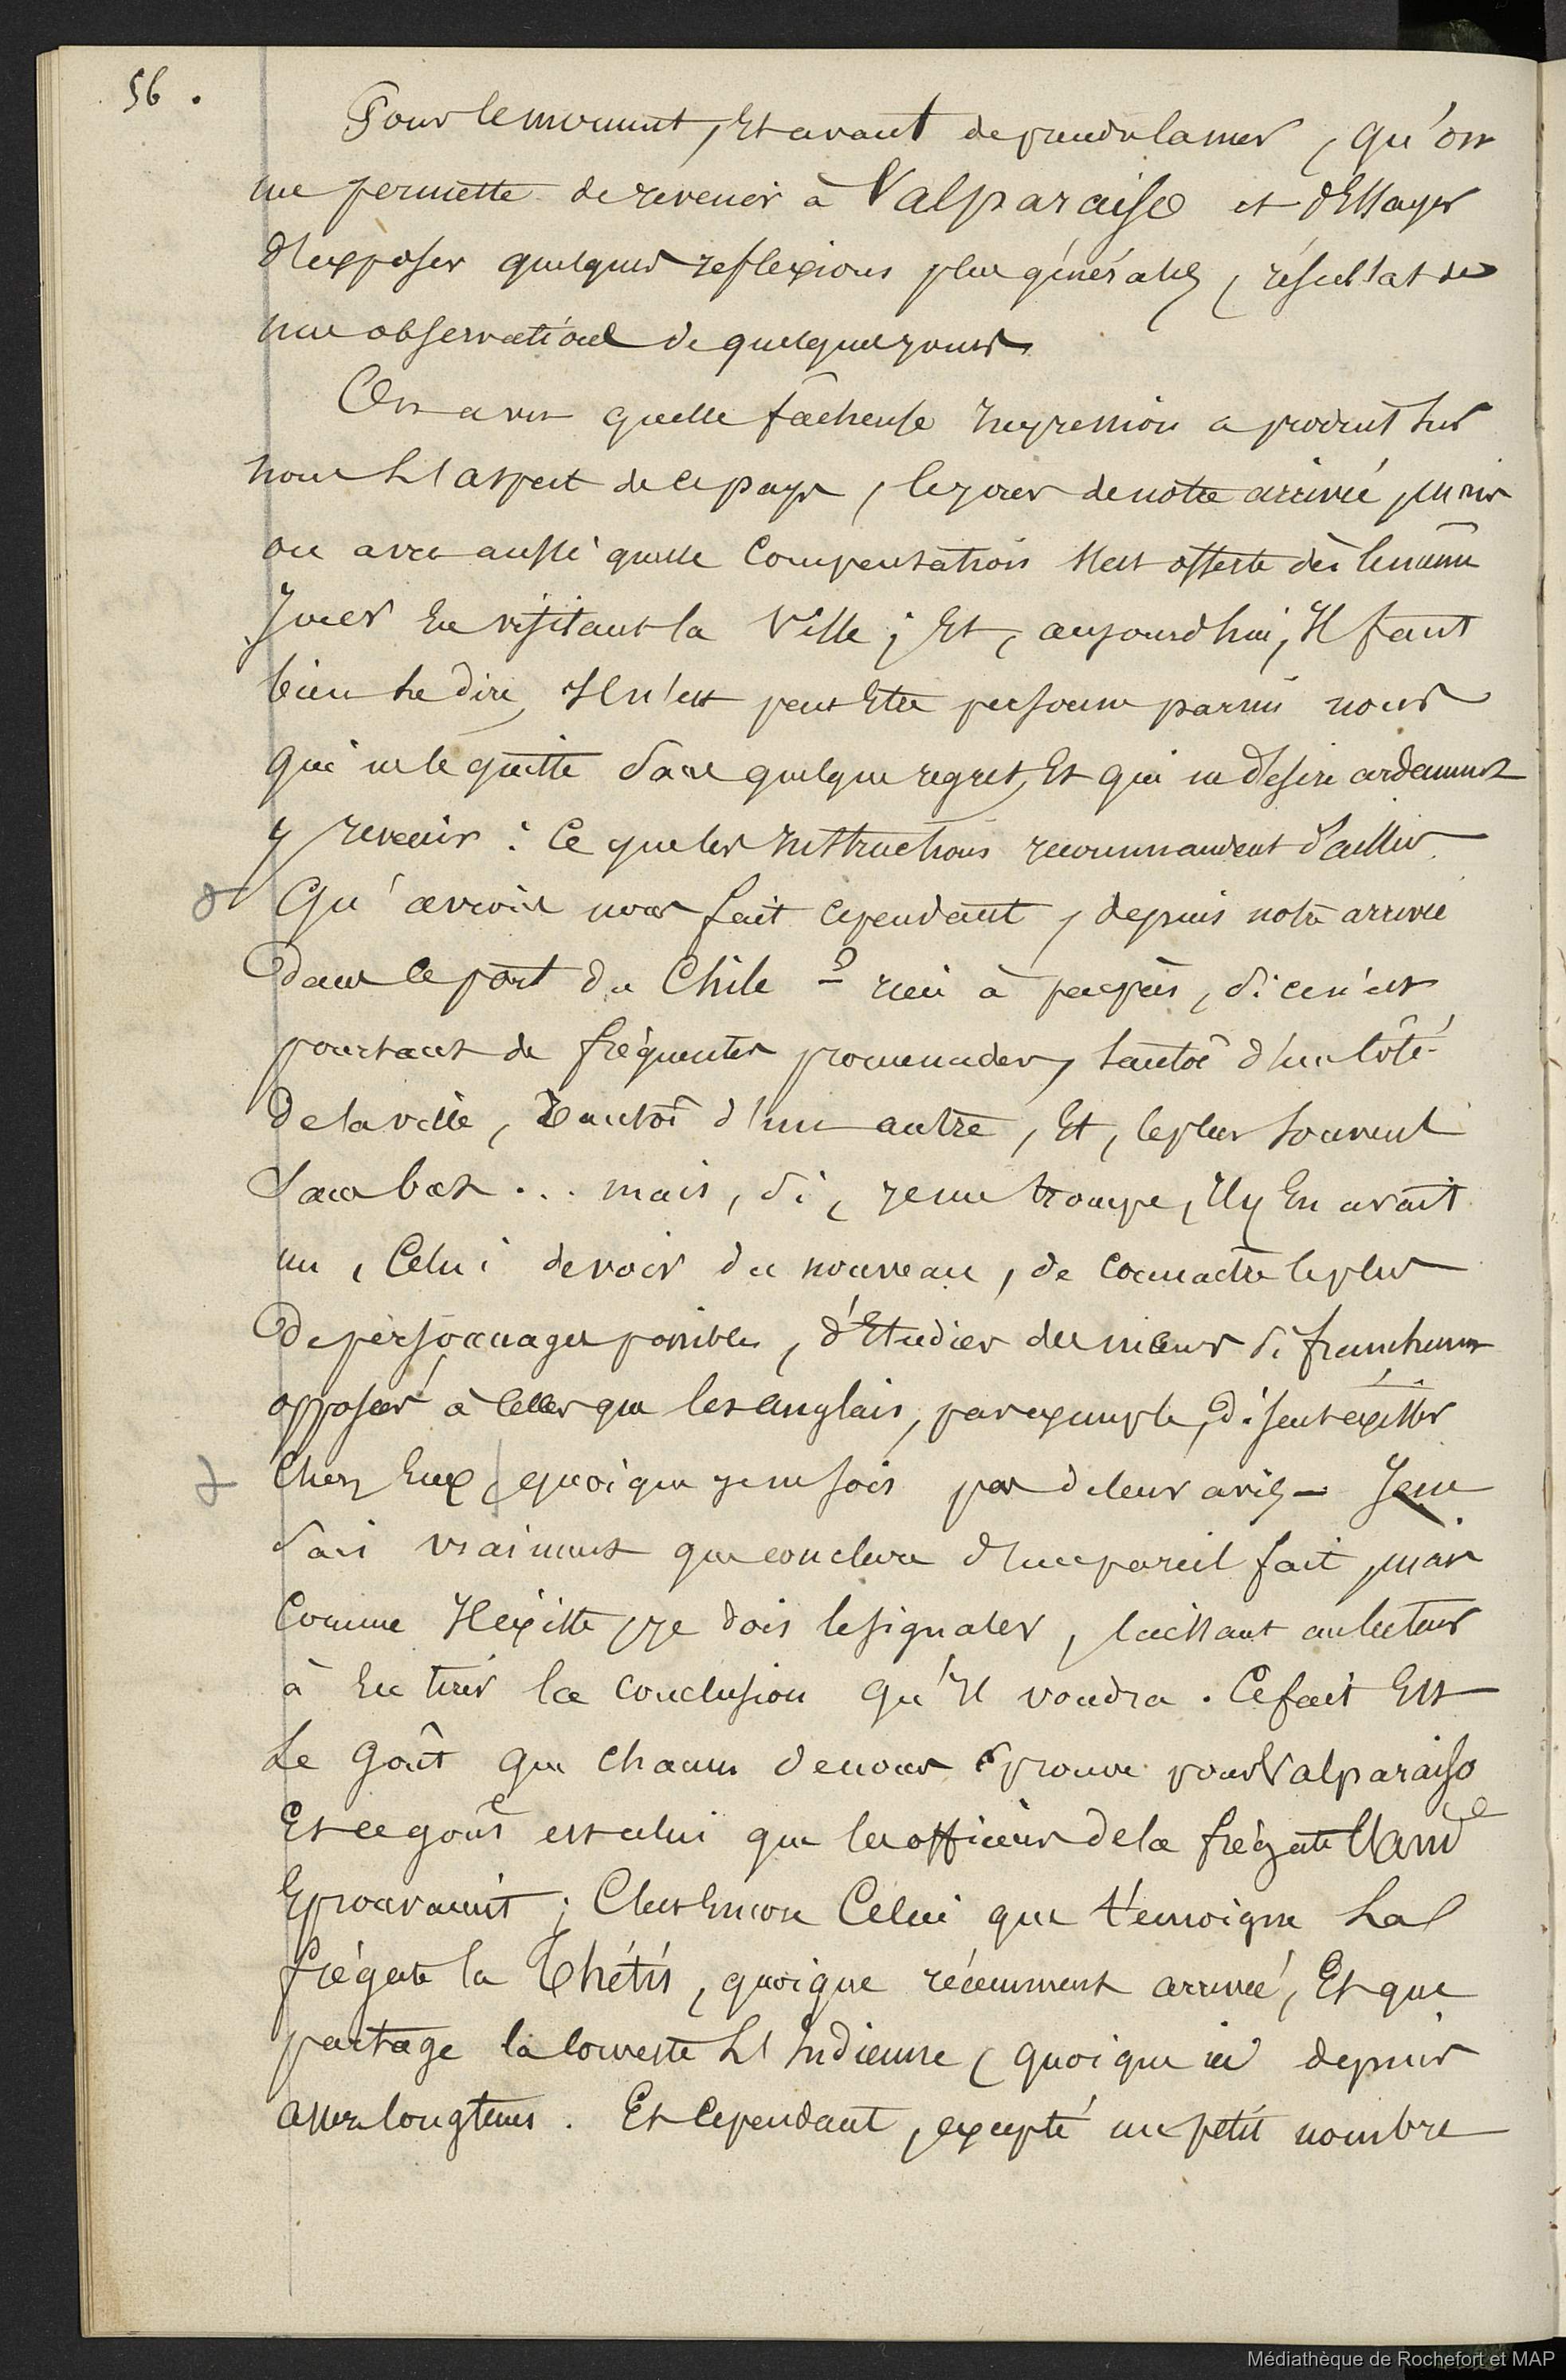 56.
Pour le moment, Et avant de prendre la mer, qu'on
me permette de revenir à Valparaiso et d'Essayer
d'exposer quelques reflexions plus générales, résultat de
une observation de quelques jours
On a vu quelle fâcheuse Impression a produit sur
nous L'aspect de ce pays, le jour de notre arrivée, mais
on a vu aussi quelle Compensation s'est offerte dès le même
Jour En visitant la Ville; Et, aujourd'hui, Il faut
bien Le dire, Il n'est peut Etre personne parmi nous
qui ne le quitte sans quelque regret, Et qui ne désire ardemment
y revenir: Ce que les Instructions recommandent d'ailleurs
Qu'avons nous fait cependant, depuis notre arrivée
Dans ce port du Chile? rien à peu près, si ce n'est
pourtant de fréquentes promenades, tantôt d'un côté
De la ville, Tantôt d'un autre, Et, le plus Souvent
Sans but... mais, si, je me trompe, Il y En avait
un, Celui de voir du nouveau, de Connaitre le plus
De personnages possibles, d'Etudier des mœurs si franchement
opposées à Celles que les anglais, par exemple, disent exister
Chez Eux, quoique je ne sois pas de leur avis – Je ne
Sais vraiment que conclure d'un pareil fait, mais
Comme Il existe, je dois le signaler, laissant au lecteur
à En tirer la Conclusion qu'Il voudra. Ce fait Est
Le Goût que Chacun de nous éprouve pour Valparaiso
Et ce goût est celui que les officiers de la frégate
Eprouvaient; C'est Encore Celui que témoigne La
frégate la Thétis, quoique récemment arrivée, Et que
partage la Corvette L'Indienne, quoique ici depuis
assez longtems. Et Cependant, excepté un petit nombre
Médiathèque de Rochefort et MAP